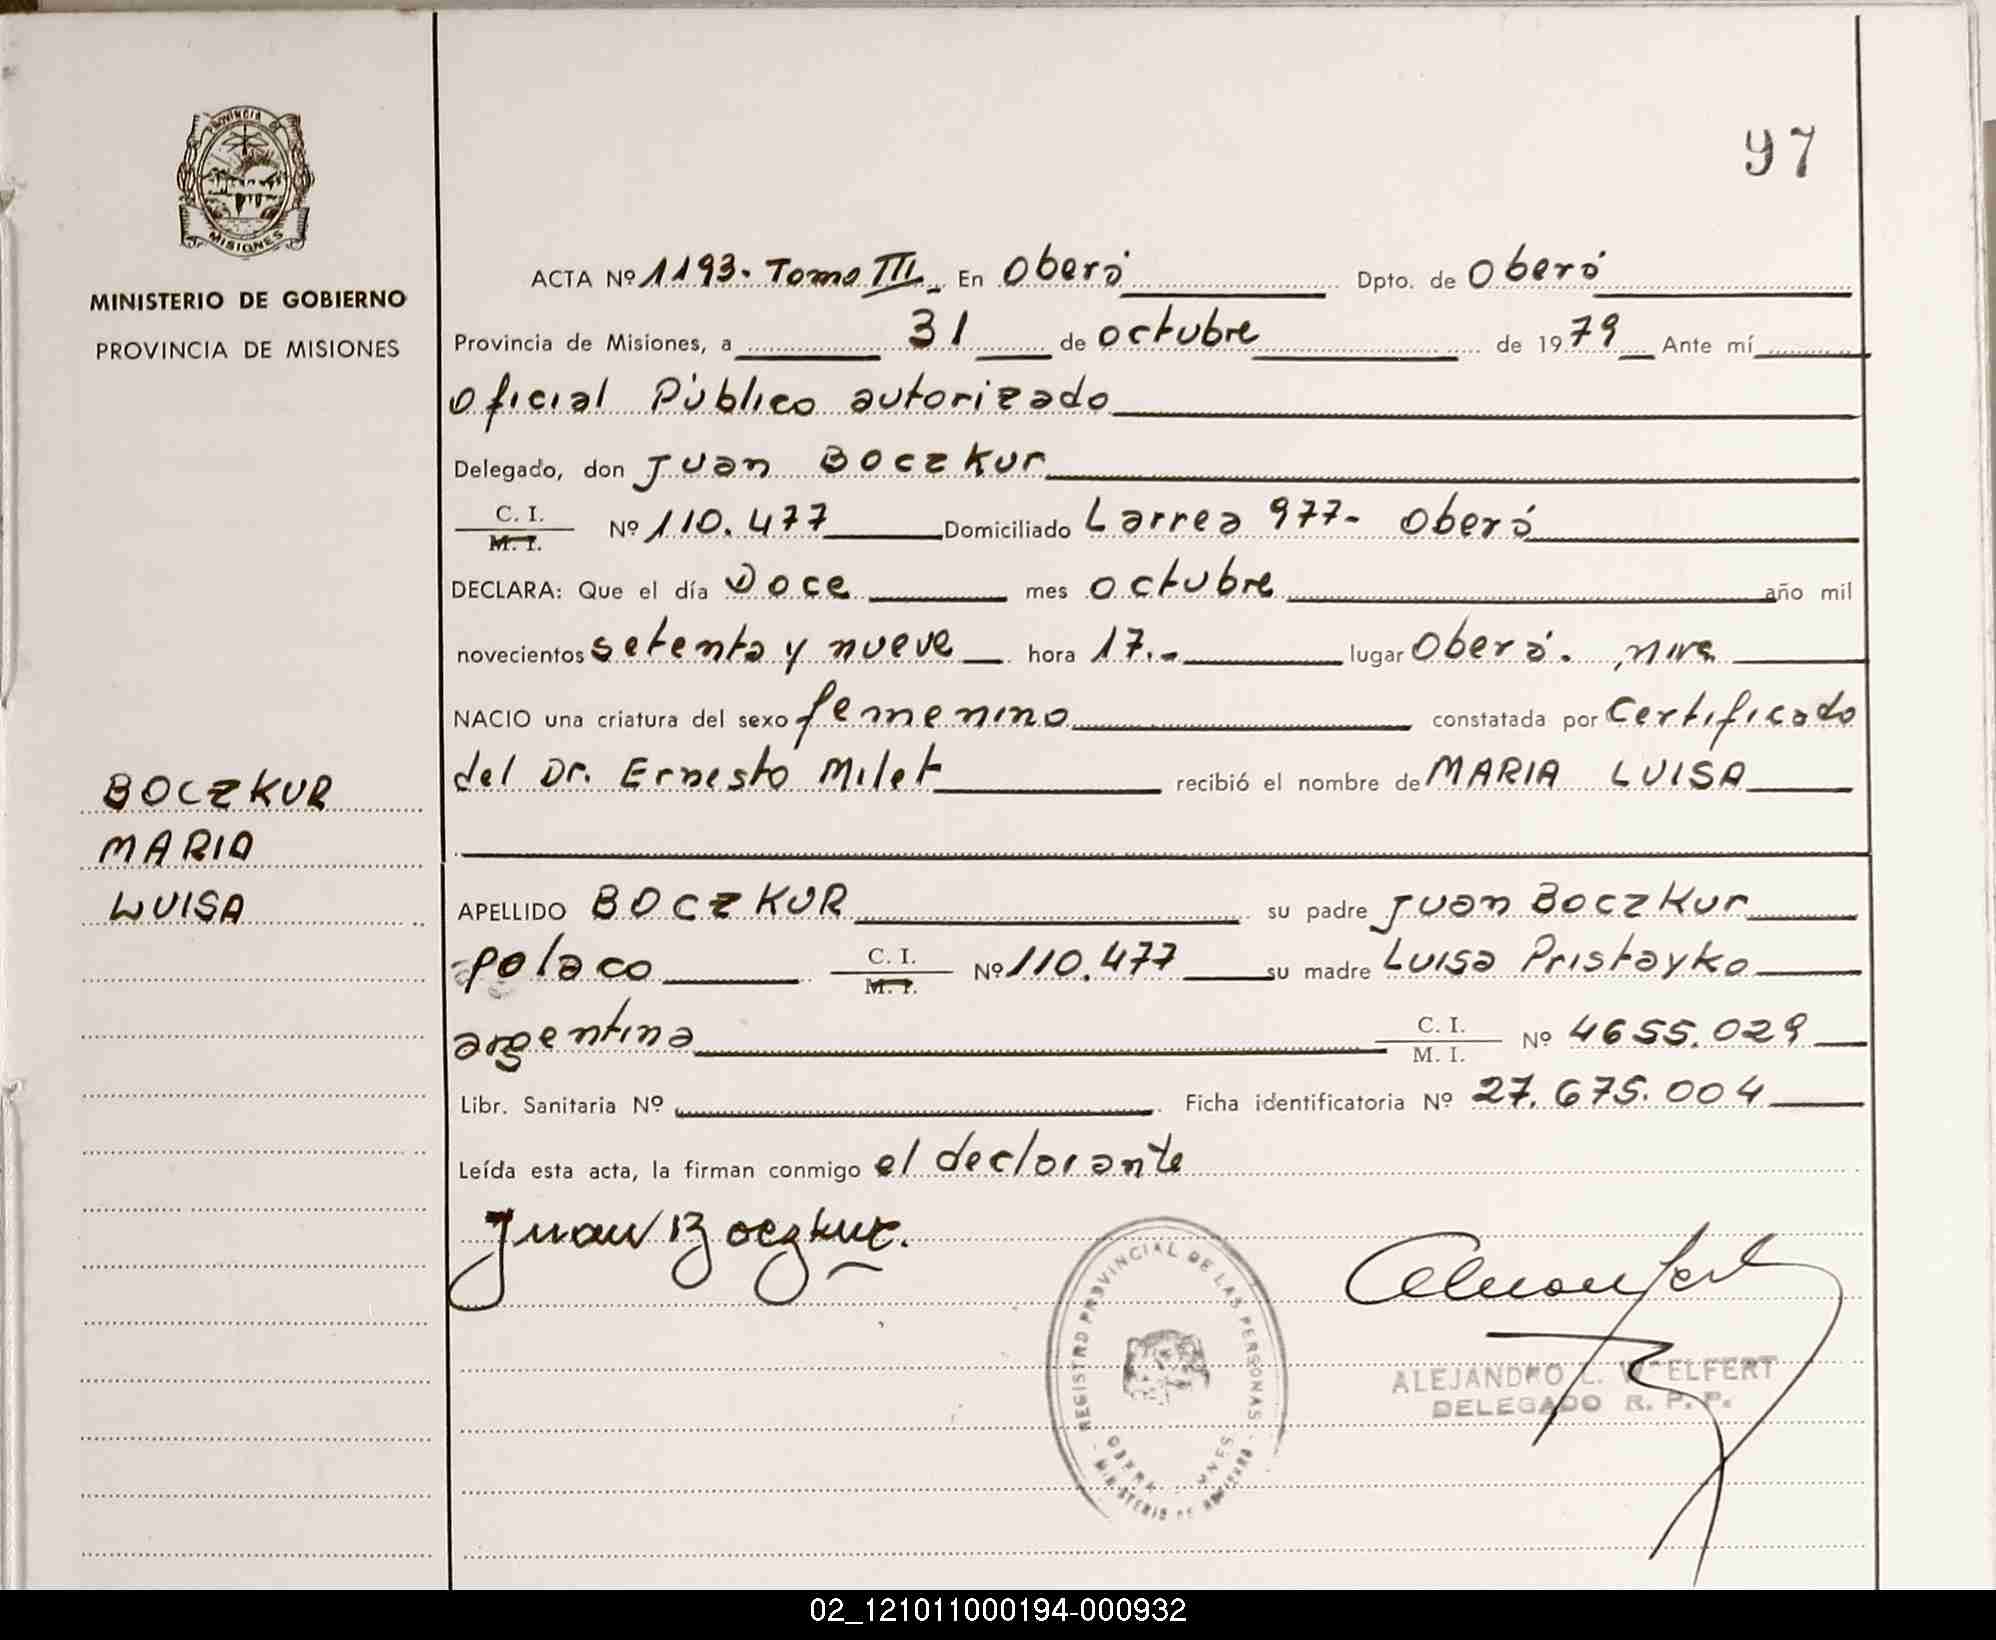 97
PROVINCIA DE
MISIONES
MINISTERIO DE GOBIERNO
PROVINCIA DE MISIONES
ACTA Nº 1193. Tomo III. En Oberá Dpto. de Oberá
Provincia de Misiones, a 31 de octubre de 1979 Ante mí
Oficial Público autorizado
Delegado, don Juan Boczkur
C. I.
M. I. Nº 110.477 Domiciliado Larrea 977- Oberá
DECLARA: Que el día Doce mes octubre año mil
novecientos setenta y nueve hora 17.- lugar Oberá.
NACIO una criatura del sexo femenino constatada por Certificado
del Dr. Ernesto Milet recibió el nombre de MARIA LUISA
BOCZKUR
MARIA
LUISA
APELLIDO BOCZKUR su padre Juan Boczkur
polaco C. I. M. I. Nº 110.477 su madre Luisa Pristayko
argentina C. I. M. I. Nº 4655.029
Libr. Sanitaria Nº Ficha identificatoria Nº 27.675.004
Leída esta acta, la firman conmigo el declarante
Juan Boczkur.
REGISTRO PROVINCIAL DE LAS PERSONAS
MINISTERIO DE
ALEJANDRO L. WELFERT
DELEGADO R. P. P.
02_121011000194-000932